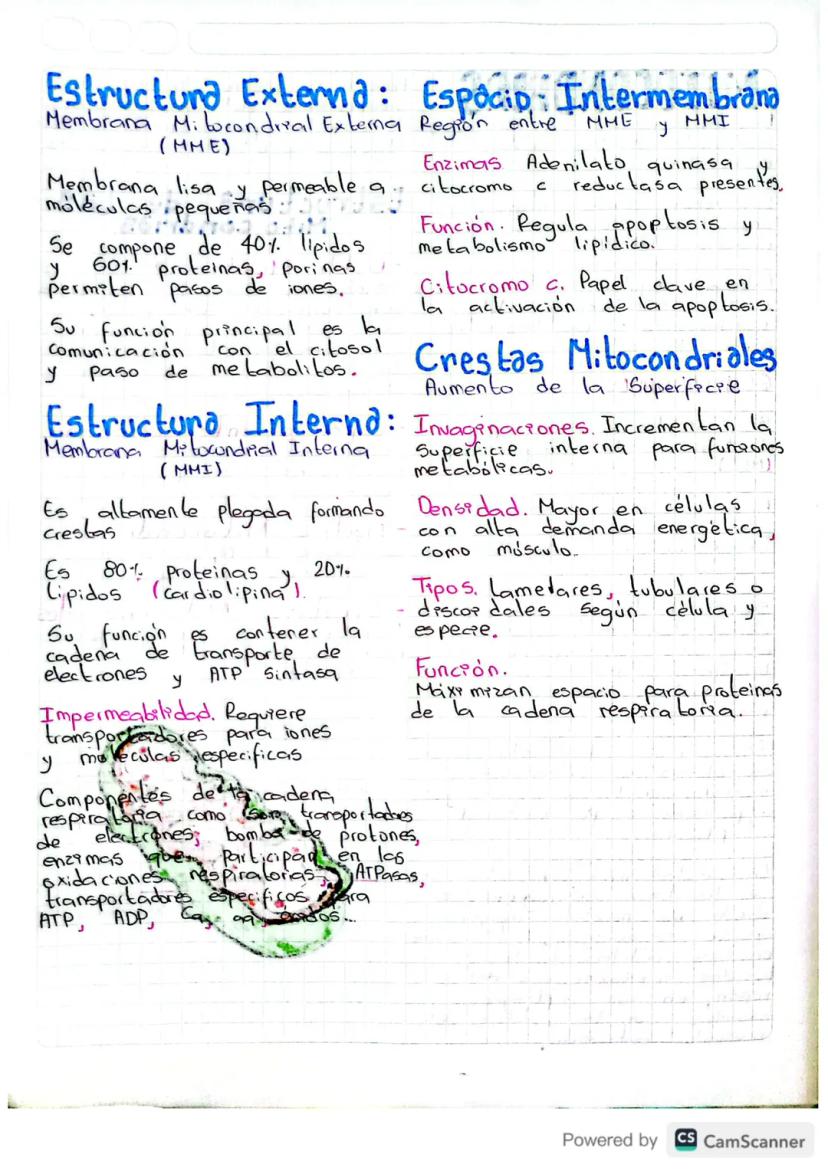 Estructura Externa:
Membrana Mitocondrial Externa
(MME)
Membrana lisa y permeable a
moléculas pequeñas
Se compone de 40% lípidos
y 60% proteinas, porinas
permiten pasos de iones.
Su función principal es la
comunicación con el citosol
y paso de metabolitos.
Estructura Interna:
Membrana Mitocondrial Interna
(MMI)
Es altamente plegada formando
crestas
Es 80% proteinas y 20%
Lípidos (cardiolipina).
Su función es contener la
cadena de transporte de
electrones y ATP sintasa
Impermeabilidad. Requiere
transportadores para iones
y moléculas especificas
Componentes de la cadena
respiratoria como son transportadores
de electrones; bomba de protones,
enzimas que participan en las
oxidaciones respiratorias, ATPasas,
transportadores especificos para
ATP, ADP, Ca,
Espacio Intermembrana
Región entre MME y MMI
Enzimas. Adenilato quinasa y
citocromo c reductasa presentes.
Función. Regula apoptosis y
metabolismo lipídico.
Citocromo c. Papel clave en
la activación de la apoptosis.
Crestas Mitocondriales
Aumento de la Superficie
Invaginaciones. Incrementan la
superficie interna para funciones
metabólicas.
Densidad. Mayor en células
con alta demanda energética,
como músculo.
Tipos. Lamelares, tubulares o
discoidales según célula y
especie.
Función.
Máximizan espacio para proteinas
de la cadena respiratoria.
Powered by CS CamScanner